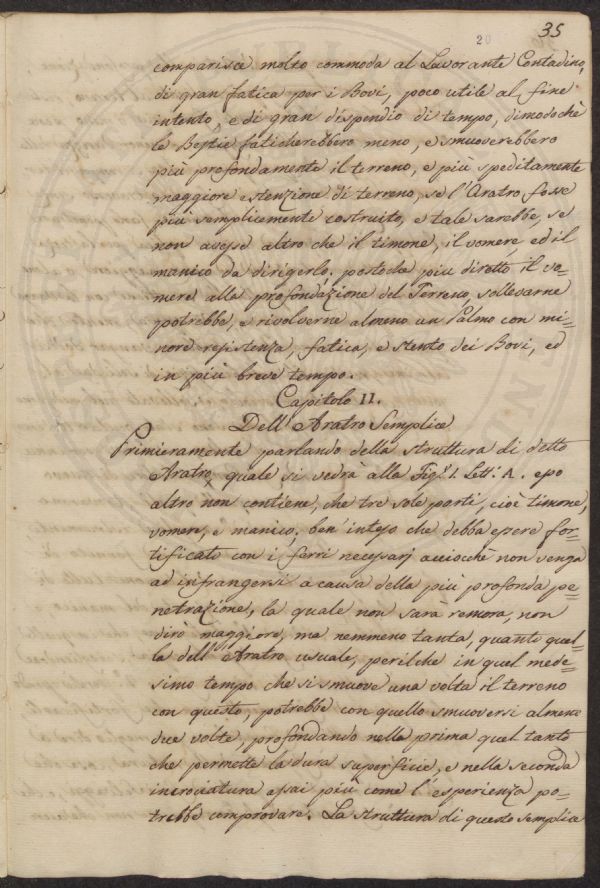 20 35
comparisce molto commoda al Lavorante Contadino,
di gran fatica per i Bovi, poco utile al fine
intento, e di gran dispendio di tempo, dimodochè
le Bestie faticherebbero meno, e smuoverebbero
più profondamente il terreno, e più speditamente
maggiore estenzione di terreno, se l'Aratro fosse
più semplicemente costruito, e tale sarebbe, se
non avesse altro che il timone, il vomere, ed il
manico da dirigerlo. postochè più diretto il vo=
mere alla profondazione del Terreno, sollevarne
potrebbe, e rivolverne almeno un Palmo con mi=
nore resistenza, fatica, e stento dei Bovi, ed
in più breve tempo.
Capitolo II.
Dell'Aratro Semplice
Primieramente parlando della struttura di detto
Aratro, quale si vedrà alla Fig.ª 1. Lett.ª A. epo
altro non contiene, che tre sole parti, cioè timone,
vomere, e manico; ben'inteso che debba essere for=
tificato con i ferri necessarj acciocchè non venga
ad infrangersi a causa della più profonda pe=
netrazione, la quale non sarà remora, non
dirò maggiore, ma nemmeno tanta, quanto quel=
la dell'Aratro usuale, perilchè in quel mede=
simo tempo che si smuove una volta il terreno
con questo, potrebbe con quello smuoversi almeno
due volte, profondando nella prima quel tanto
che permette la dura superficie, e nella seconda
incrociatura assai più come l'esperienza po=
trebbe comprovare. La struttura di questo semplice